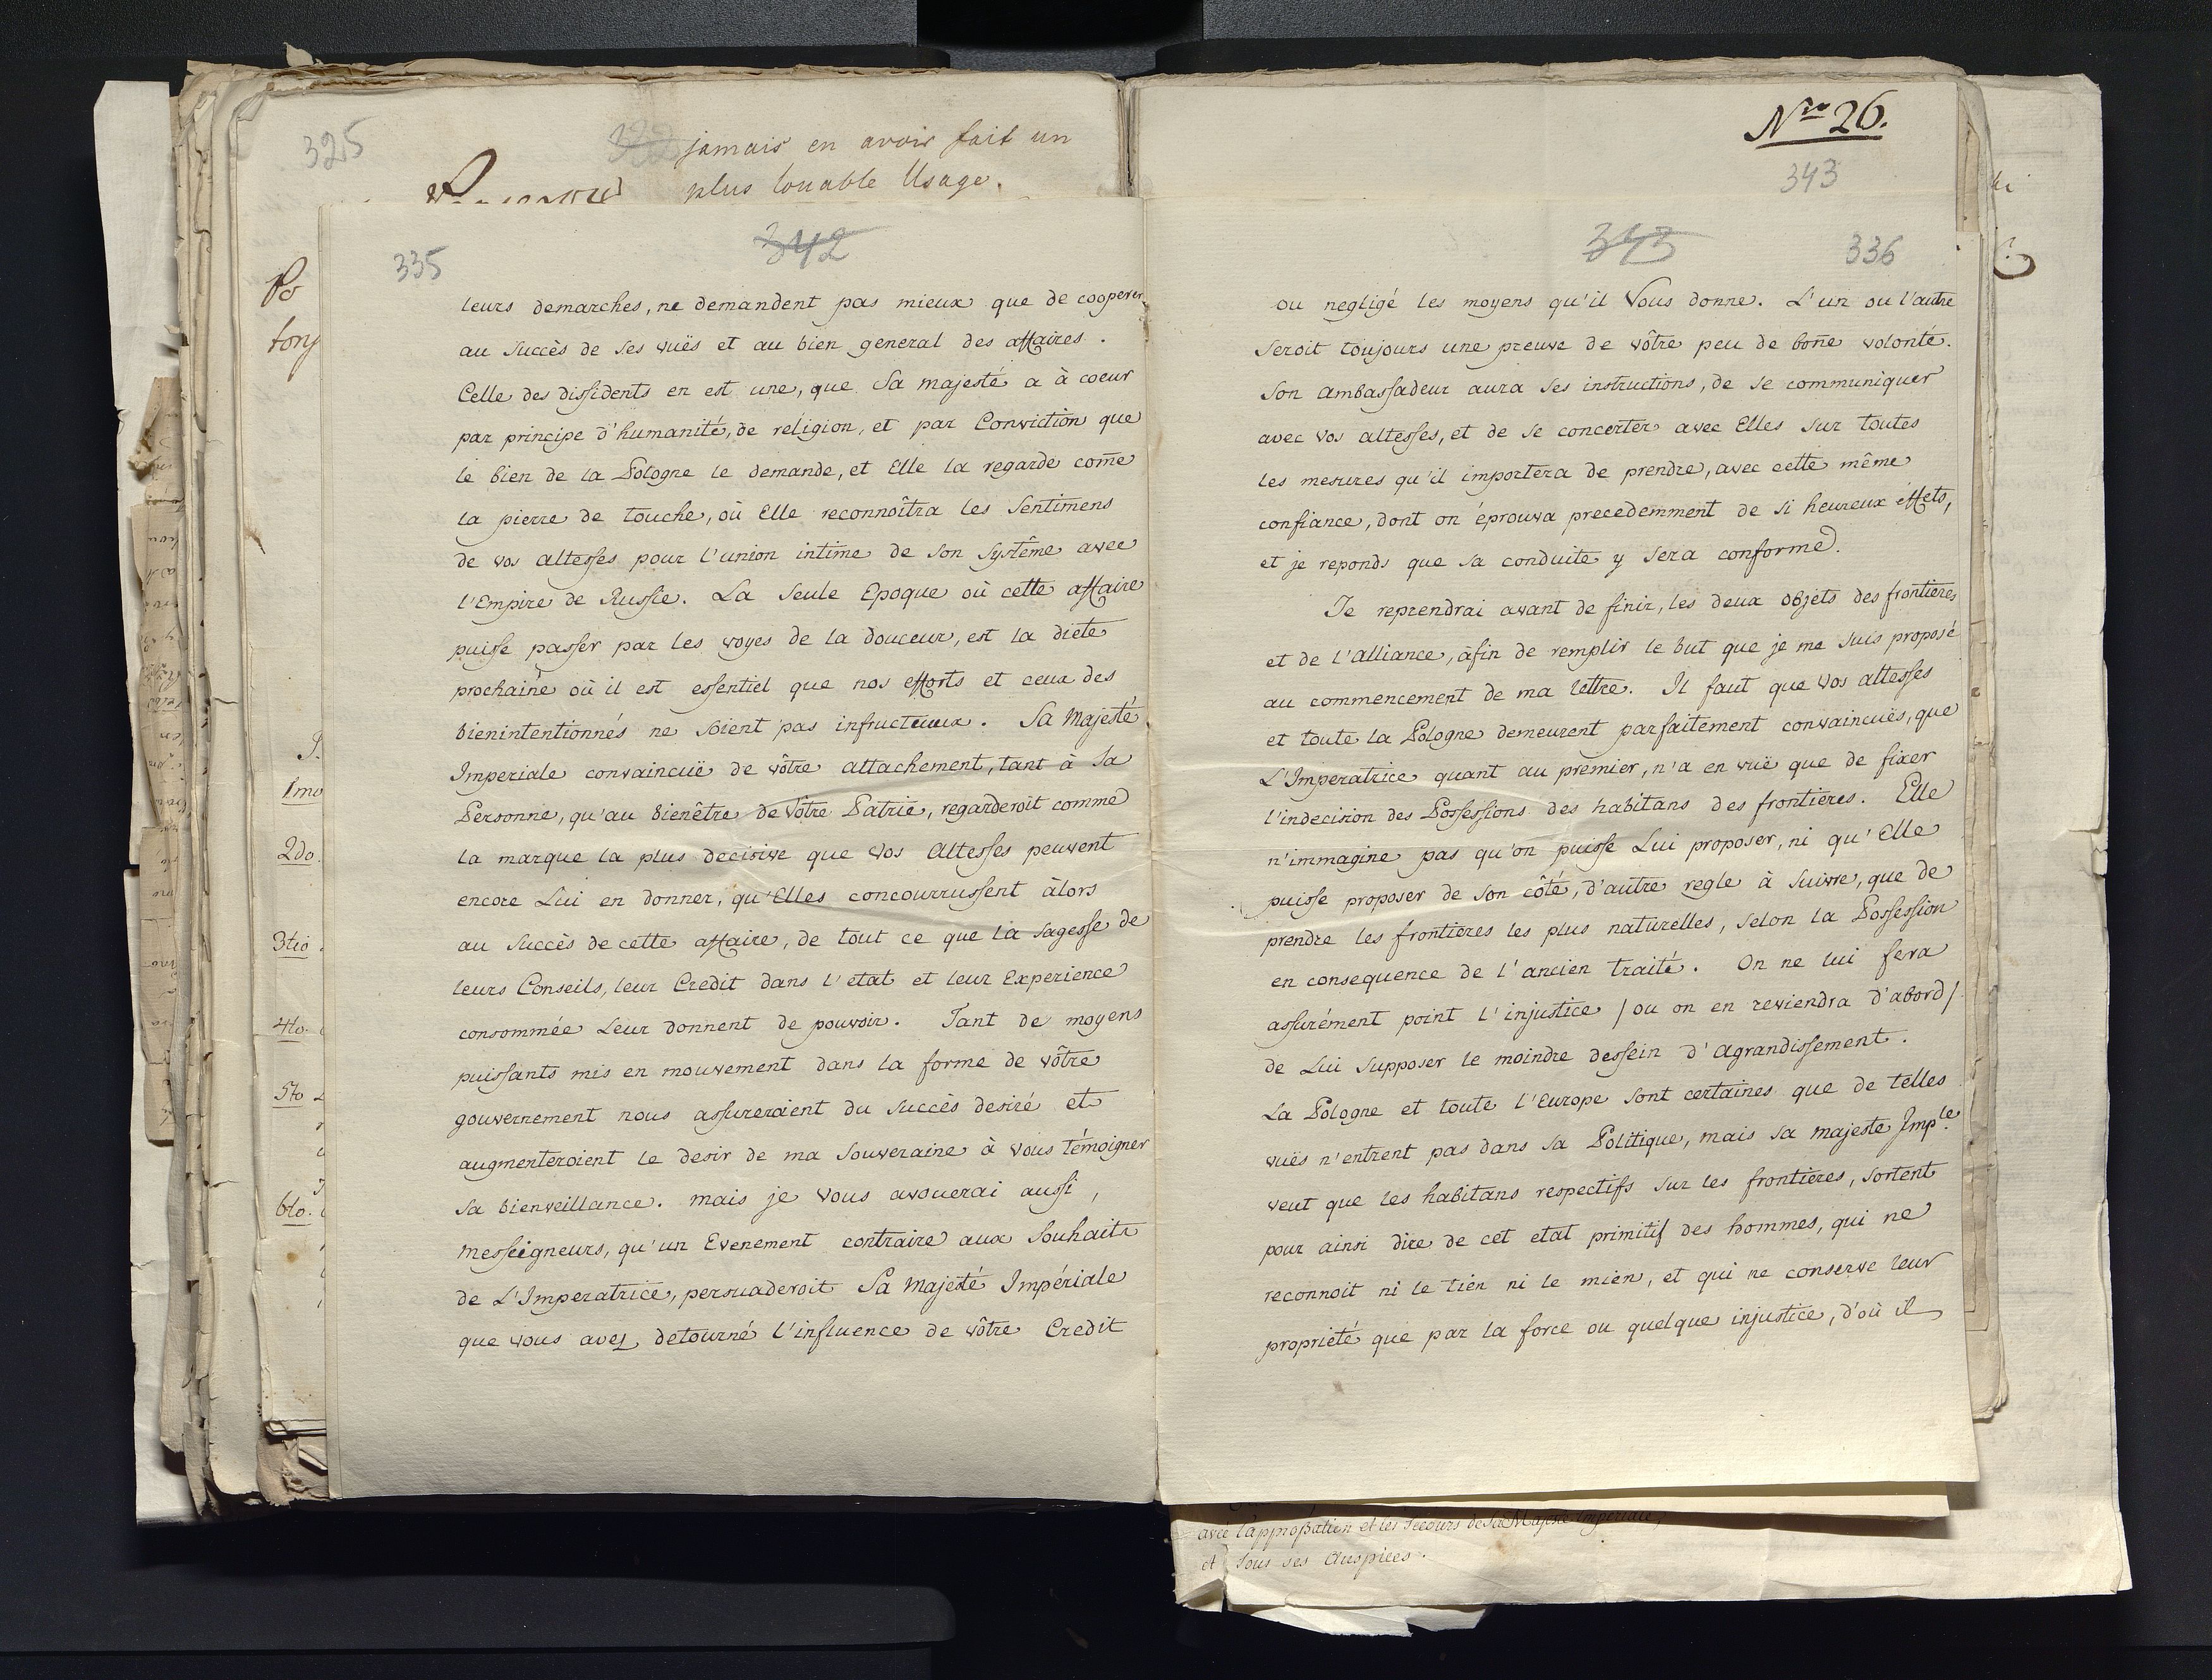 325
jamais en avoir fait un
plus louable Usage.
335
342
leurs demarches, ne demandent pas mieux que de cooperer
au succès de ses vuës et au bien general des affaires.
Celle des dissidents en est une, que Sa majesté a à coeur
par principe d'humanité, de réligion, et par Conviction que
le bien de la Pologne le demande, et Elle la regarde com̃e
la pierre de touche, où Elle reconnoîtra les Sentimens
de vos altesses pour l'union intime de son Systême avec
l'Empire de Russie. La seule Epoque où cette affaire
puisse passer par les voyes de la douceur, est la diete
prochaine où il est essentiel que nos efforts et ceux des
bienintentionnés ne soient pas infructueux. Sa Majesté
Imperiale convaincuë de vôtre attachement, tant à Sa
Personne, qu'au bienêtre de Vôtre Patrie, regarderoit comme
la marque la plus decisive que Vos Altesses peuvent
encore Lui en donner, qu'Elles concourrussent àlors
au succès de cette affaire, de tout ce que la sagesse de
leurs Conseils, leur Credit dans l'etat et leur Experience
consommée Leur donnent de pouvoir. Tant de moyens
puissants mis en mouvement dans la forme de vôtre
gouvernement nous assureroient du succès desiré et
augmenteroient le desir de ma Souveraine à vous témoigner
sa bienveillance. mais je vous avouerai aussi,
messeigneurs, qu'un Evenement contraire aux Souhaits
de L'Imperatrice, persuaderoit Sa Majesté Impériale
que vous avez detourné l'influence de vôtre Credit
Nro 26.
343
343
336
ou negligé les moyens qu'il Vous donne. L'un ou l'autre
seroit toujours une preuve de vôtre peu de bon̄e volonté.
Son ambassadeur aura ses instructions, de se communiquer
avec vos altesses, et de se concerter avec Elles sur toutes
les mesures qu'il importera de prendre, avec cette même
confiance, dont on éprouva precedemment de si heureux éffets,
et je reponds que sa conduite y sera conforme.
Je reprendrai avant de finir, les deux objets des frontieres
et de l'alliance, àfin de remplir le but que je me suis proposé
au commencement de ma lettre. Il faut que vos altesses
et toute la Pologne demeurent parfaitement convaincuës, que
L'Imperatrice quant au premier, n'a en vuë que de fixer
l'indecision des Possessions des habitans des frontieres. Elle
n'immagine pas qu'on puisse Lui proposer, ni qu'Elle
puisse proposer de son côté, d'autre regle à suivre, que de
prendre les frontieres les plus naturelles, selon la Possession
en consequence de l'ancien traité. On ne lui fera
assurément point l'injustice / ou on en reviendra d'abord /
de Lui supposer le moindre dessein d'Agrandissement.
La Pologne et toute l'Europe sont certaines que de telles
vuës n'entrent pas dans sa Politique, mais sa majeste Imp.le
veut que les habitans respectifs sur les frontieres, sortent
pour ainsi dire de cet etat primitif des hommes, qui ne
reconnoit ni le tien ni le mien, et qui ne conserve leur
proprieté que par la force ou quelque injustice, d'où il
1mo
2do.
3tio.
4to.
5to
6to.
avec l'approbation et les secours de Sa Majesté Imperiale,
et sous ses Auspices.